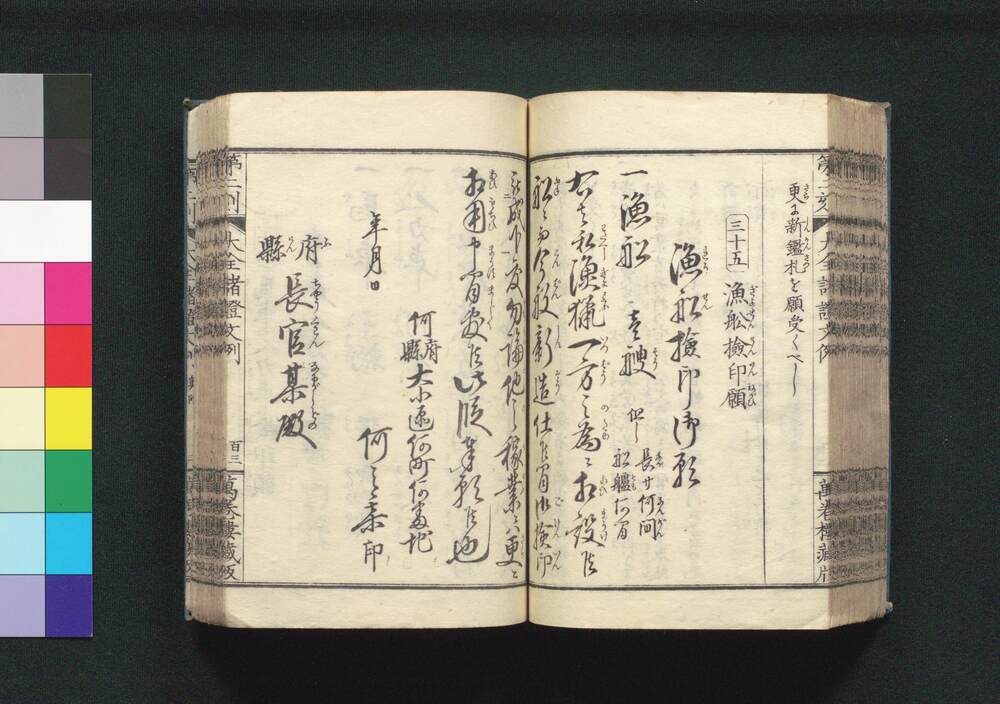 更に新鑑札を願受くべし
三十五 漁舩撿印願
漁舩撿印御願
一漁舩 壱艘 但シ 長サ何間 舩艫何間
右者私漁猟一方之為ニ相設候
舩ニ而今般新造仕候間御撿印
被成下度勿論他之稼業ニハ更ニ
相用申間敷候此段奉願候也
年月日
何府縣大小區何町何番地
何之某印
府縣長官某殿
大全諸證文例
百三
萬巻樓蔵版